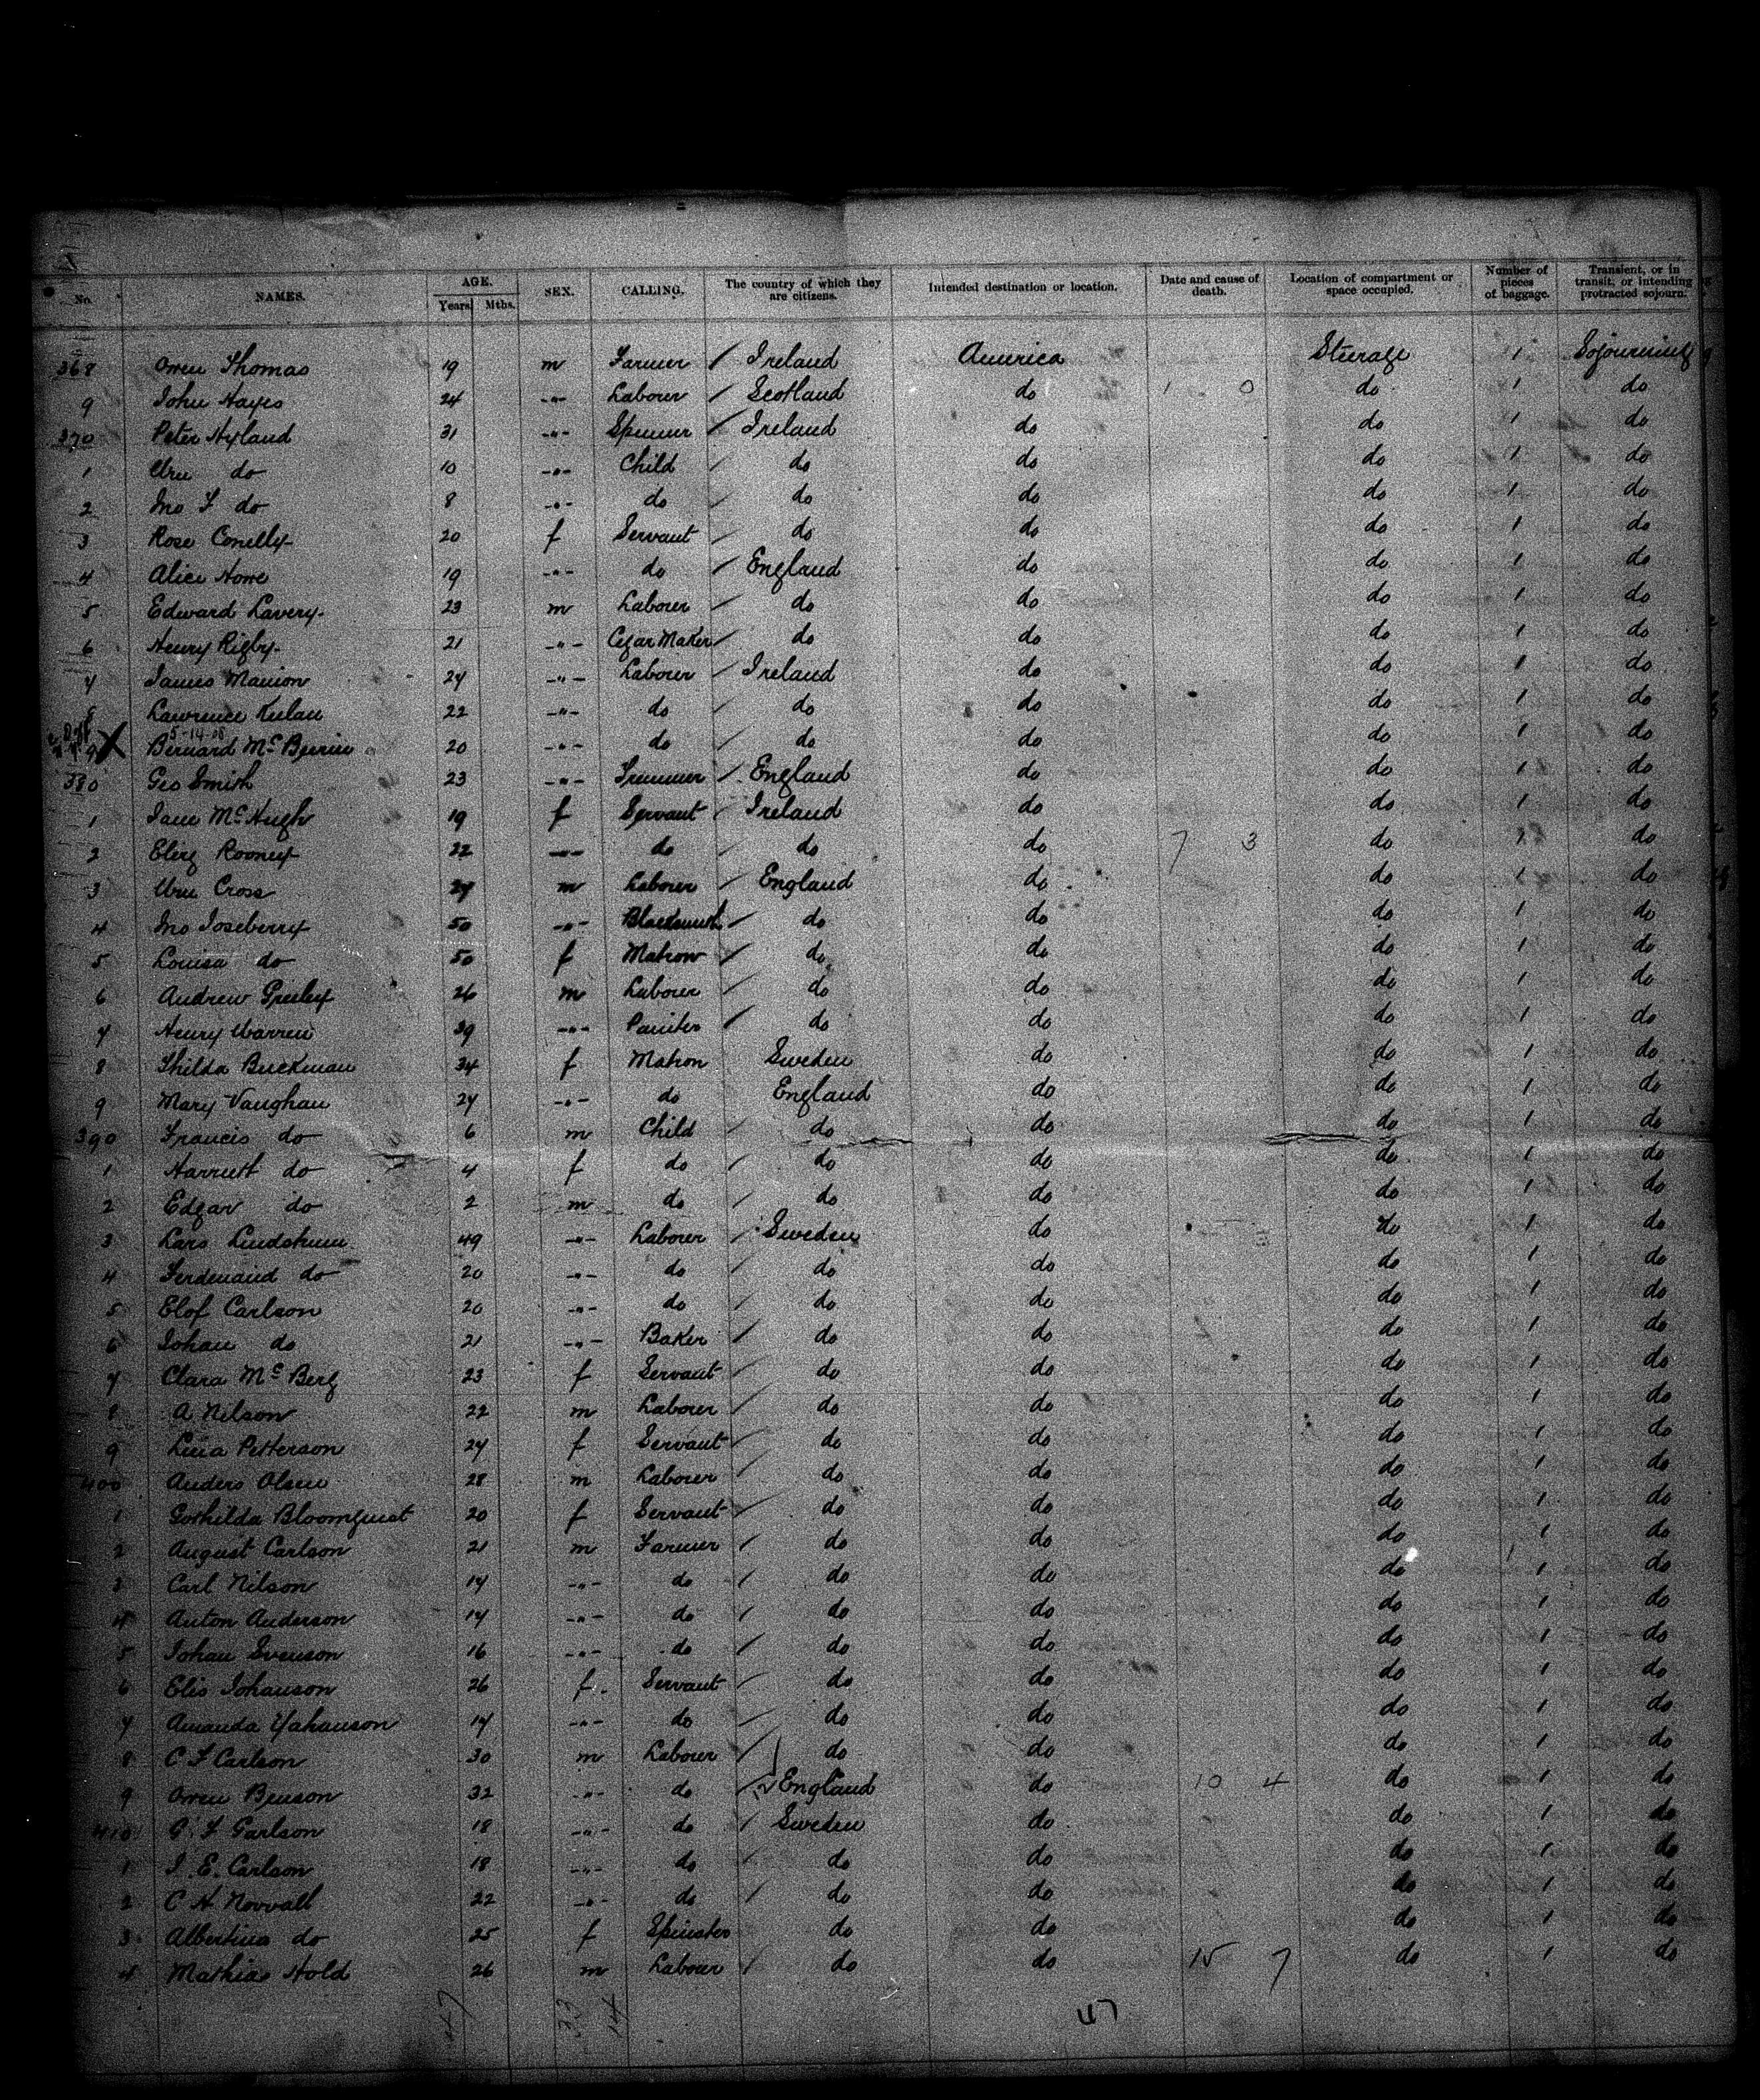 No. NAMES. AGE. Years Mths. SEX. CALLING. The country of which they are citizens. Intended destination or location. Date and cause of death. Location of compartment or space occupied. Number of pieces of baggage. Transient, or in transit, or intending protracted sojourn.
368 Owen Thomas 19 m Farmer Ireland America Steerage 1 Sojourning
9 John Hayes 24 -"- Labourer Scotland do 1 0 do 1 do
370 Peter Hyland 31 -"- Spinner Ireland do do 1 do
1 Wm do 10 -"- Child do do do 1 do
2 Jno F do 8 -"- do do do do 1 do
3 Rose Conelly 20 f Servant do do do 1 do
4 Alice Howe 19 -"- do England do do 1 do
5 Edward Lavery 23 m Labourer do do do 1 do
6 Henry Rigby 21 -"- Cigar Maker do do do 1 do
7 James Manion 24 -"- Labourer Ireland do do 1 do
8 Lawrence 22 -"- do do do do 1 do
5-14-08
9 X Bernard 20 -"- do do do do 1 do
380 Geo Smith 23 -"- England do do 1 do
1 Jane McHugh 19 f Servant Ireland do do 1 do
2 Rooney 22 -"- do do do 7 3 do 1 do
3 Wm Cross m Labourer England do do 1 do
4 Jno Joseberry 50 -"- Blacksmith do do do 1 do
5 Louisa do 50 f Matron do do do 1 do
6 Andrew 26 m Labourer do do do 1 do
7 Henry Warren 39 -"- Painter do do do 1 do
8 34 f Matron Sweden do do 1 do
9 Mary Vaughan 27 -"- do England do do 1 do
390 Francis do 6 m Child do do do 1 do
1 Harriett do 4 f do do do do 1 do
2 Edgar do 2 m do do do do 1 do
3 Lars 49 -"- Labourer Sweden do do 1 do
4 Ferdinand do 20 -"- do do do do 1 do
5 Elof Carlson 20 -"- do do do do 1 do
6 Johan do 21 -"- Baker do do do 1 do
7 Clara Mc Berg 23 f Servant do do do 1 do
8 A Nilson 22 m Labourer do do do 1 do
9 Lina Petterson 27 f Servant do do do 1 do
400 Anders Olsen 28 m Labourer do do do 1 do
1 Gothilda Bloomquist 20 f Servant do do do 1 do
2 August Carlson 21 m Farmer do do do 1 do
3 Carl Nilson 17 -"- do do do do 1 do
4 Anton Anderson 17 -"- do do do do 1 do
5 Johan Svenson 16 -"- do do do do 1 do
6 Elis Johanson 26 f Servant do do do 1 do
7 Amanda Yahanson 17 -"- do do do do 1 do
8 C F Carlson 30 m Labourer do do do 1 do
9 Owen Benson 32 -"- do England do 10 4 do 1 do
410 G. F Garlson 18 -"- do Sweden do do 1 do
1 J. E. Carlson 18 -"- do do do do 1 do
2 C H Norvall 22 -"- do do do do 1 do
3 Albertina do 25 f Spinster do do do 1 do
4 Mathias Hold 26 m Labour do do 15 7 do 1 do
47